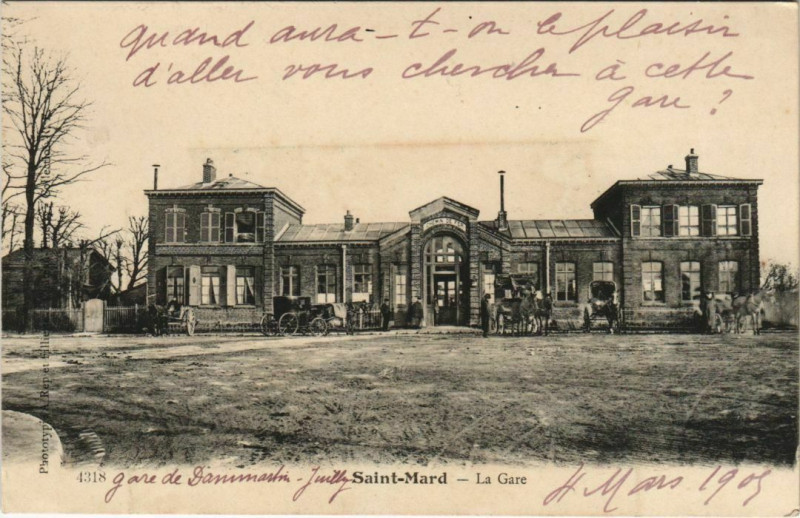 quand aura-t-on le plaisir
d'aller vous chercher à cette
gare ?
4318 gare de Dammartin-Juilly Saint-Mard — La Gare 4 Mars 1905